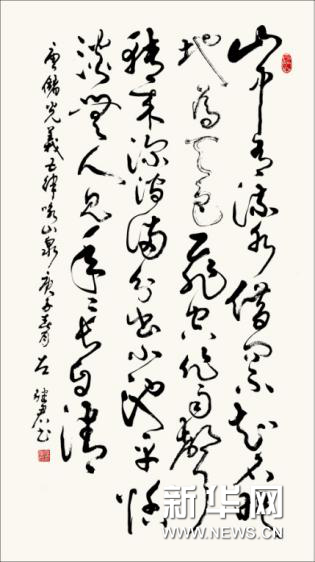 山中有流水借問不知名映
地為天色飛空作雨聲
轉來深澗滿分出小池平恬
澹無人見年年長自清
唐儲光羲五律咏山泉 庚子春月 左
新华网
NEWS.CN